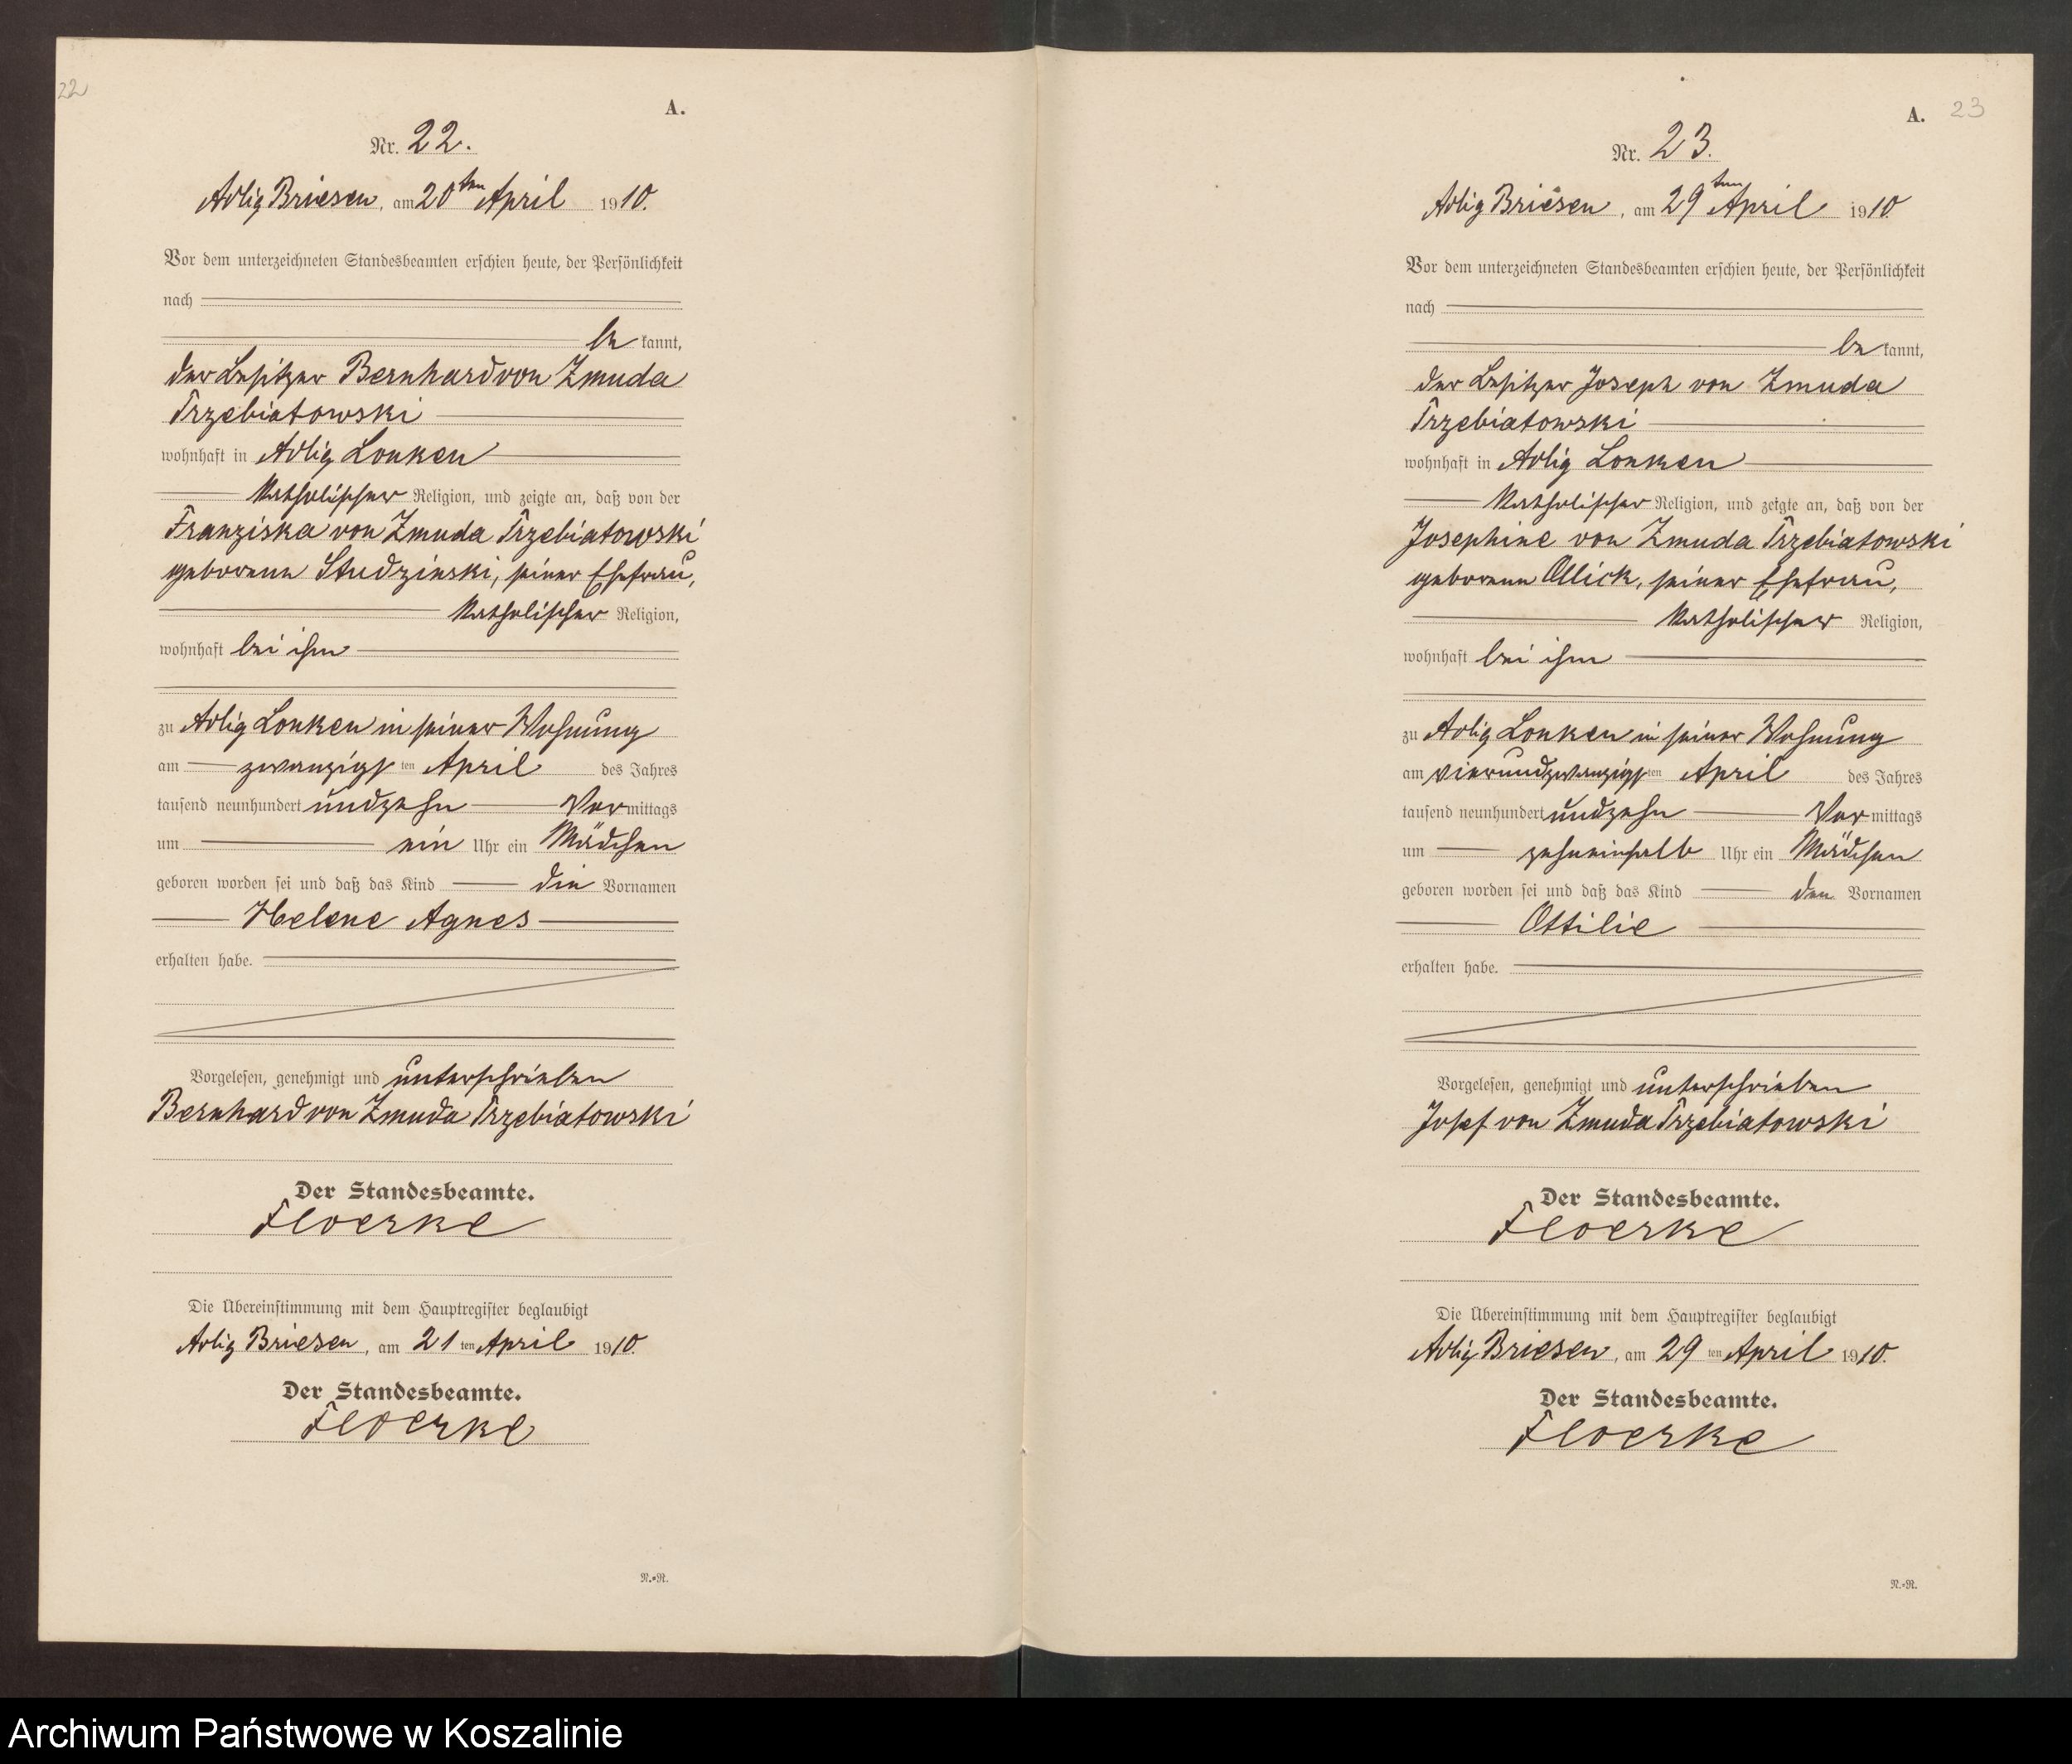 22
A.
Nr. 22.
Adlig Briesen, am 20ten April 1910.
Vor dem unterzeichneten Standesbeamten erschien heute, der Persönlichkeit
nach
be kannt,
der Besitzer Bernhard von Zmuda
Trzebiatowski
wohnhaft in Adlig Lonken
katholischer Religion, und zeigte an, daß von der
Franziska von Zmuda Trzebiatowski
geborene Studzinski, seiner Ehefrau,
katholischer Religion,
wohnhaft bei ihm
zu Adlig Lonken in seiner Wohnung
am zwanzigsten April des Jahres
tausend neunhundert undzehn Vormittags
um ein Uhr ein Mädchen
geboren worden sei und daß das Kind die Vornamen
Helene Agnes
erhalten habe.
Vorgelesen, genehmigt und unterschrieben
Bernhard von Zmuda Trzebiatowski
Der Standesbeamte.
Floerke
Die Übereinstimmung mit dem Hauptregister beglaubigt
Adlig Briesen, am 21ten April 1910.
Der Standesbeamte.
Floerke
N.=R.
A. 23
Nr. 23.
Adlig Briesen, am 29ten April 1910.
Vor dem unterzeichneten Standesbeamten erschien heute, der Persönlichkeit
nach
be kannt,
der Besitzer Joseph von Zmuda
Trzebiatowski
wohnhaft in Adlig Lonken
katholischer Religion, und zeigte an, daß von der
Josephine von Zmuda Trzebiatowski
geborene Ollick, seiner Ehefrau,
katholischer Religion,
wohnhaft bei ihm
zu Adlig Lonken in seiner Wohnung
am vierundzwanzigsten April des Jahres
tausend neunhundert undzehn Vormittags
um zehneinhalb Uhr ein Mädchen
geboren worden sei und daß das Kind den Vornamen
Ottilie
erhalten habe.
Vorgelesen, genehmigt und unterschrieben
Josef von Zmuda Trzebiatowski
Der Standesbeamte.
Floerke
Die Übereinstimmung mit dem Hauptregister beglaubigt
Adlig Briesen, am 29ten April 1910.
Der Standesbeamte.
Floerke
N.=R.
Archiwum Państwowe w Koszalinie